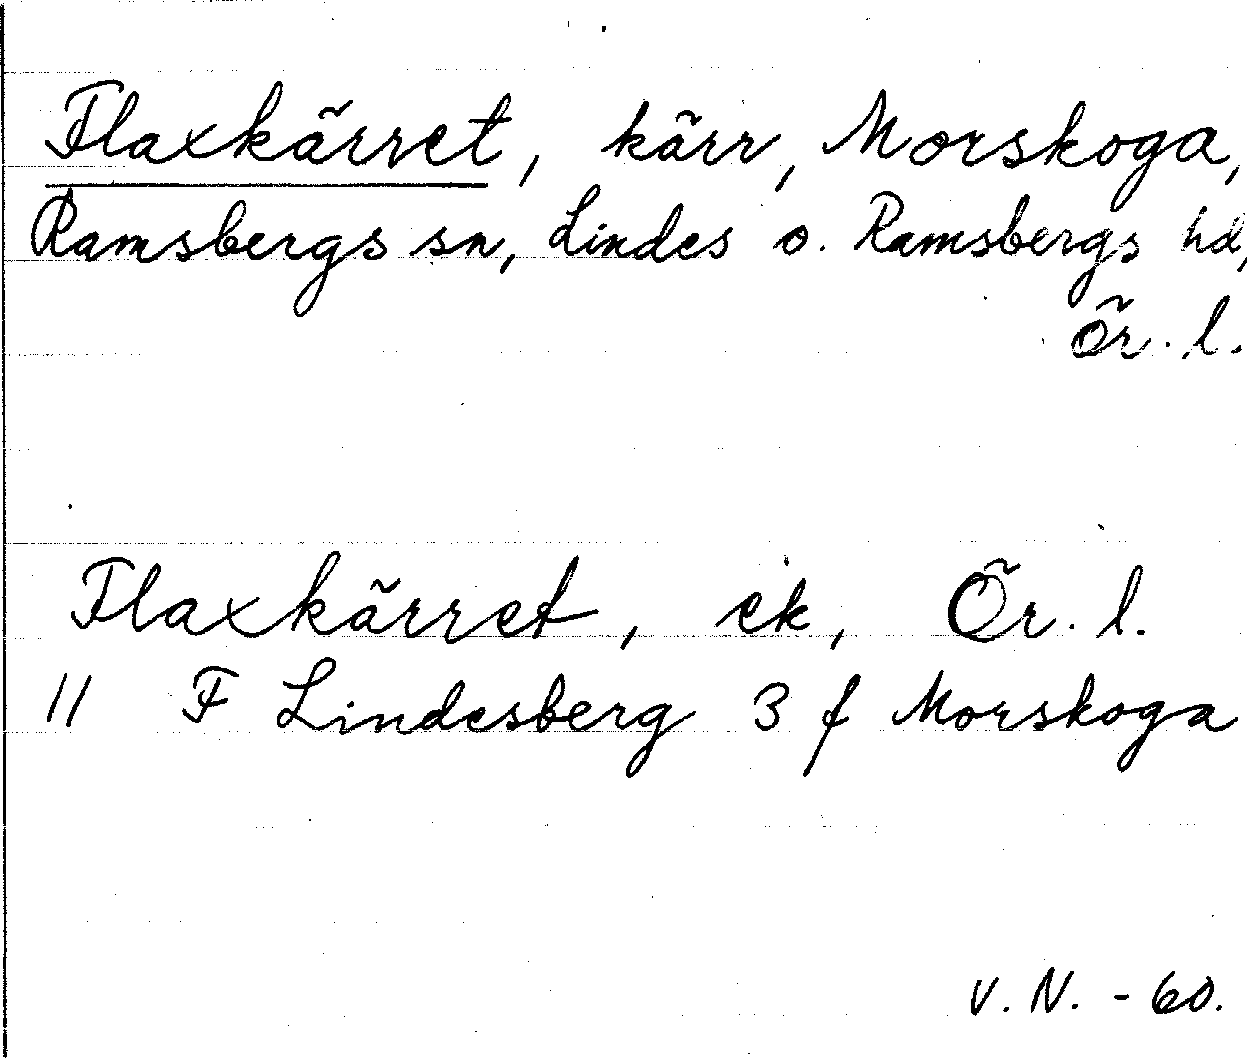 Flaxkärret, kärr, Morskoga,
Ramsbergs sn, Lindes o. Ramsbergs hd,
Ör. l.
Flaxkärret, ek, Ör. l.
11 F Lindesberg 3 f Morskoga
V. N. - 60.